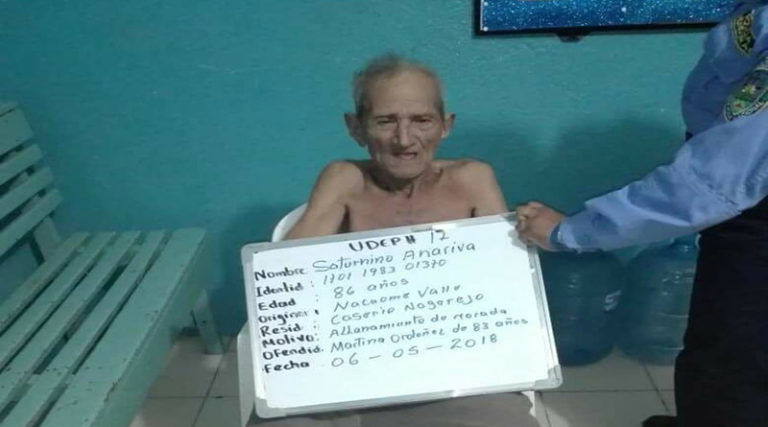 UDEP# 12
Nombre: Saturnino Anariva
Identid: 1701 1983 01370
Edad: 86 años
Origine: Nacaome Valle
Resid: Caserio Nagarejo
Motivo: Allanamiento de morada
Ofendid. Martina Ordoñez de 83 años
Fecha 06-05-2018